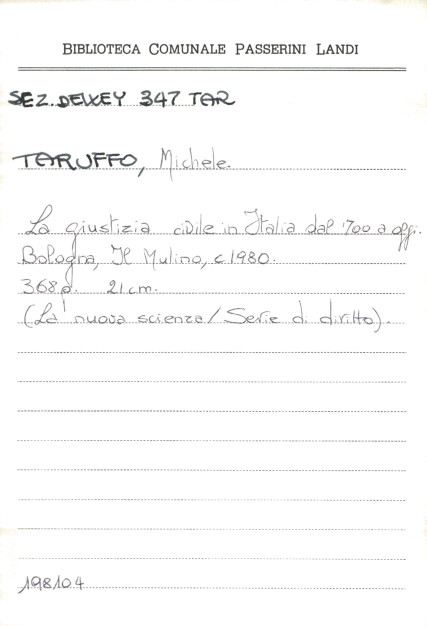 BIBLIOTECA COMUNALE PASSERINI LANDI
SEZ. DEWEY 347 TAR
TARUFFO, Michele.
La giustizia civile in Italia dal '700 a oggi.
Bologna, Il Mulino, c1980.
368p. 21cm.
(La nuova scienza/Serie di diritto).
198104